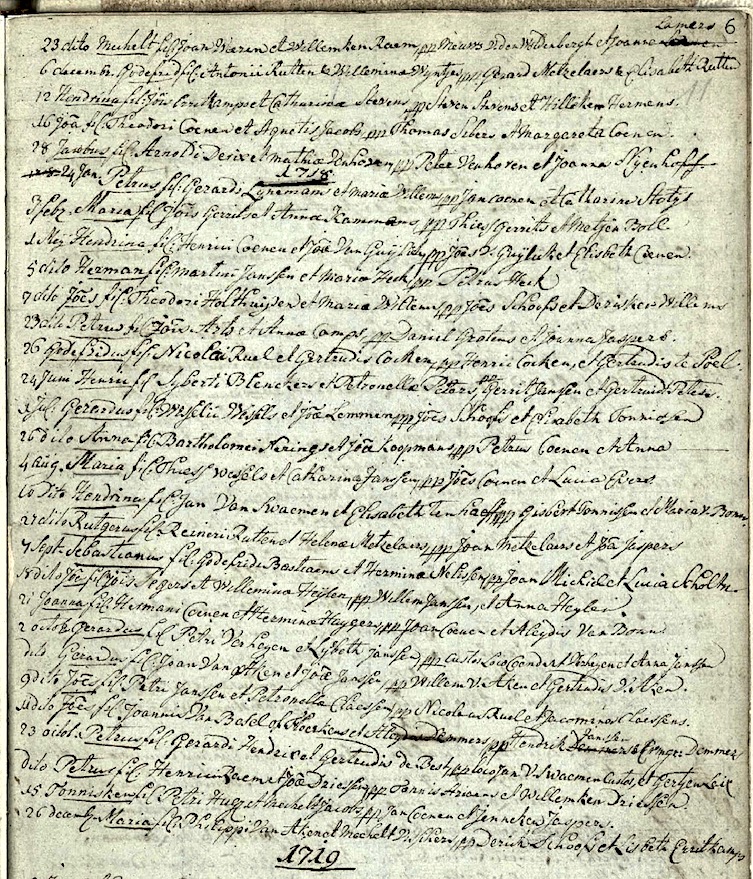 Lamers 6
23 dito Mechelt fil. Joan Waeren et Willemken Raem, pp Nieuws v. den Wildenbergh et Joanna
6 decembr. Godefrid fil. Antonii Rutten & Willemina Wyntjes, pp Gerard Metzelaers & Elisabeth Rutten
12 Hendrina fil. Jois Erritkamps et Catharinae Stevens, pp Steven Stevens et Willeken Hermens.
16 Joa fil. Theodori Coenen et Agnetis Jacobs, pp Thomas Sibers et Margareta Coenen.
28 Jacobus fil. Arnoldi Derix et Mathiae Venhoven, pp Peter Venhoven et Joanna Nyenhoff.
1718
24 Jan. Petrus fil. Gerardi Lynemans et Maria Willems, pp Jan Coenen et Catharina Stotgs
3 feby. Maria fil. Jois Gerrits et Anna Rammans, pp Thies Gerrits et Metjen Boll
1 Meij Hendrina fil. Henrici Coenen et Joa Van Guylick, pp Joes v. Guylick et Elisbeth Coenen.
5 dito Herman fil. Martini Janssen et Maria Heck, pp Petrus Heck
7 dito Joes fil. Theodori Holthuysen et Maria Willems, pp Joes Schoofs et Derisken Willems
23 dito Petrus fil. Jois Arts et Anna Camps, pp Daniel Grotens et Joanna Jaspers.
26 Godefridus fil. Nicolai Ruel et Gertrudis Cocken, pp Henric Cocken, et Gertrudis te Poel.
24 Juni Henric fil. Syberti Blenckers et Petronella Peters, Gerrit Jansen et Gertruid Peters.
Jul. Gerardus fil. Wesselii Wesels et Joa Lemmen, pp Joes Schoofs et Elisabeth Tonnissen
26 dito Anna fil. Bartholomei Nerings et Joa Koopmans, pp Petrus Coenen et Anna
4 aug. Maria fil. Thiess Wesels et Catharina Janssen, pp Joes Coenen et Lucia Evers
10 Dito Hendrina fil. Jan Van Swaemen et Elisabeth ten Haeff, pp Gisbert Tonnissen et Maria v. Bonn.
27 dito Rutgerus fil. Reineri Rutten et Helena Metzelaers, pp Joan Metzelaers et Joa Jaspers
7 Sept. Sebastianus fil. Godefridi Bastiaens et Hermina Nelissen, pp Joan Michiels et Lucia Scholten
18 dito Joes fil. Jois Segers et Willemina Heylen, pp Willem Janssen, et Anna Heylen.
21 Joanna fil. Hermani Coenen et Hermina Heygers, pp Joan Coenen et Aleydis Van Bonn.
2 octob. Gerardus fil. Petri Verheyen et Lysbeth Janssen, pp Custos loco Coenders Verheyen et Anna Janssen
dito Gerardus fil. Joan Van Aken et Joa Janssen, pp Willem V. Aken et Gertrudis V. Aken.
9 dito Joes fil. Petri Janssen et Petronella Claessen, pp Nicolaus Ruel et Jacomina Claessens.
11 dito Joes fil. Joannis Van Bakel of Hoerkens et Aleydis Demmers, pp Hendrik Janssen & Enge. Demmers
23 octob. Petrus fil. Gerardi Hendrix et Gertrudis de Best, pp loco Jan V. Swaemen Custos, et Gertjen Leix
dito Petrus fil. Henrici Raem et Joa Driessen, pp Tonnis Ariaens et Willemken Driessen
15 Tonnisken fil. Petri Huys et Mechelt Jacobs, pp Jan Coenen et Jenneken Jaspers.
26 decemb. Maria fil. Philippi Van Aken et Mechelt Vissers, pp Derick Schoofs et Lisbeth Erritkamps
1719